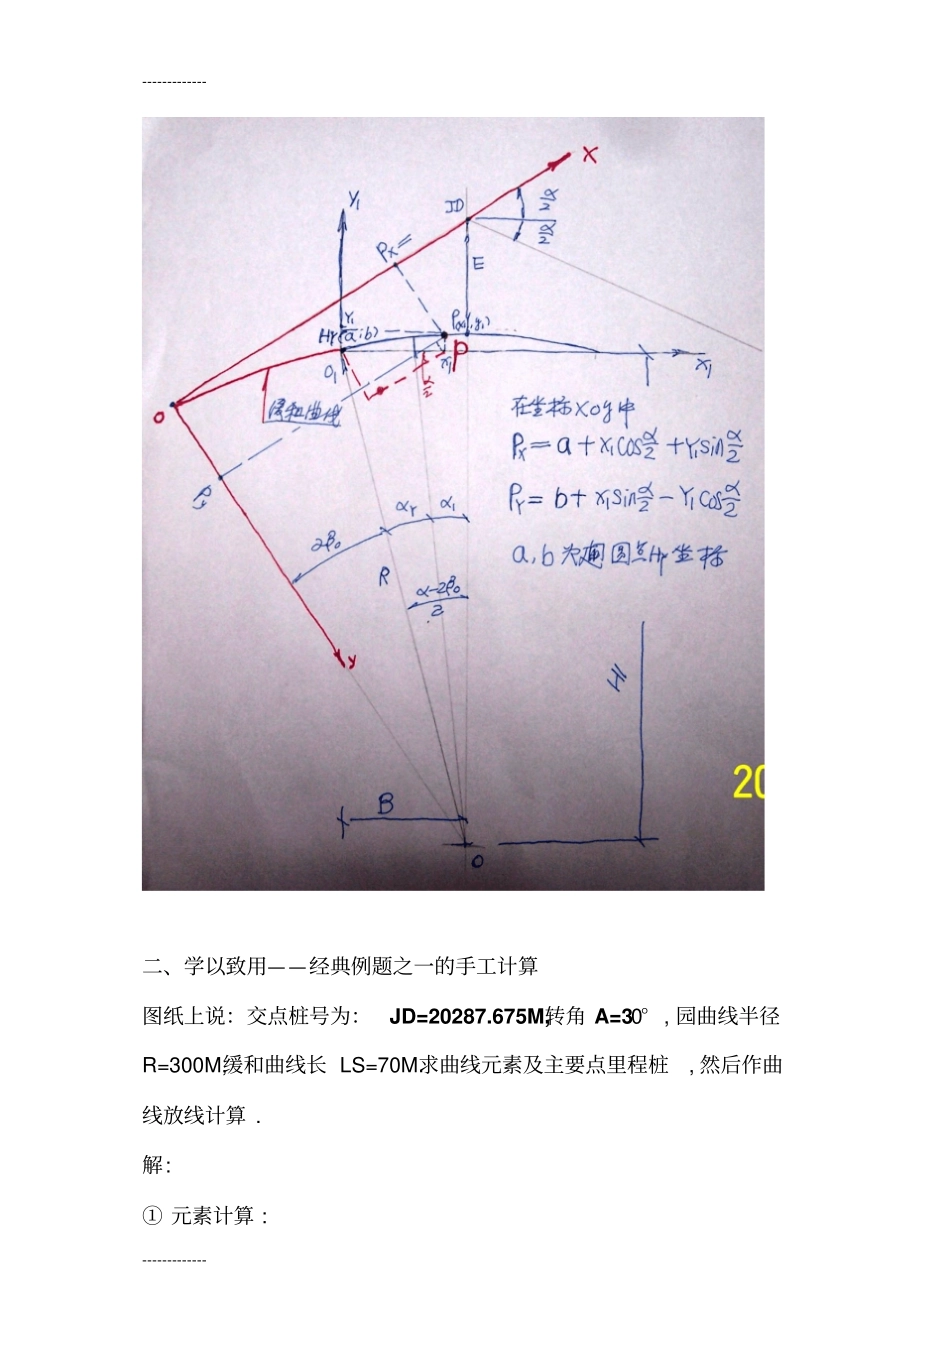 -------------
X
Y₁
JD
α/2
α/2
PX=
E
Y₁
HY(a;b)
P(x₁,y₁)
O₁
x₁
P
α/2
X₁
O
缓和曲线
在坐标XOY中
Px=a+x₁cosα/2+Y₁sinα/2
Py
PY=b+x₁sinα/2-Y₁cosα/2
αY
α₁
2β₀
a,b为 圆点HY坐标
R
α-2β₀/2
y
H
20
B
O
二、学以致用——经典例题之一的手工计算
图纸上说：交点桩号为： JD=20287.675M,转角 A=30° , 园曲线半径
R=300M,缓和曲线长 LS=70M.求曲线元素及主要点里程桩 , 然后作曲
线放线计算 .
解:
① 元素计算 :
-------------